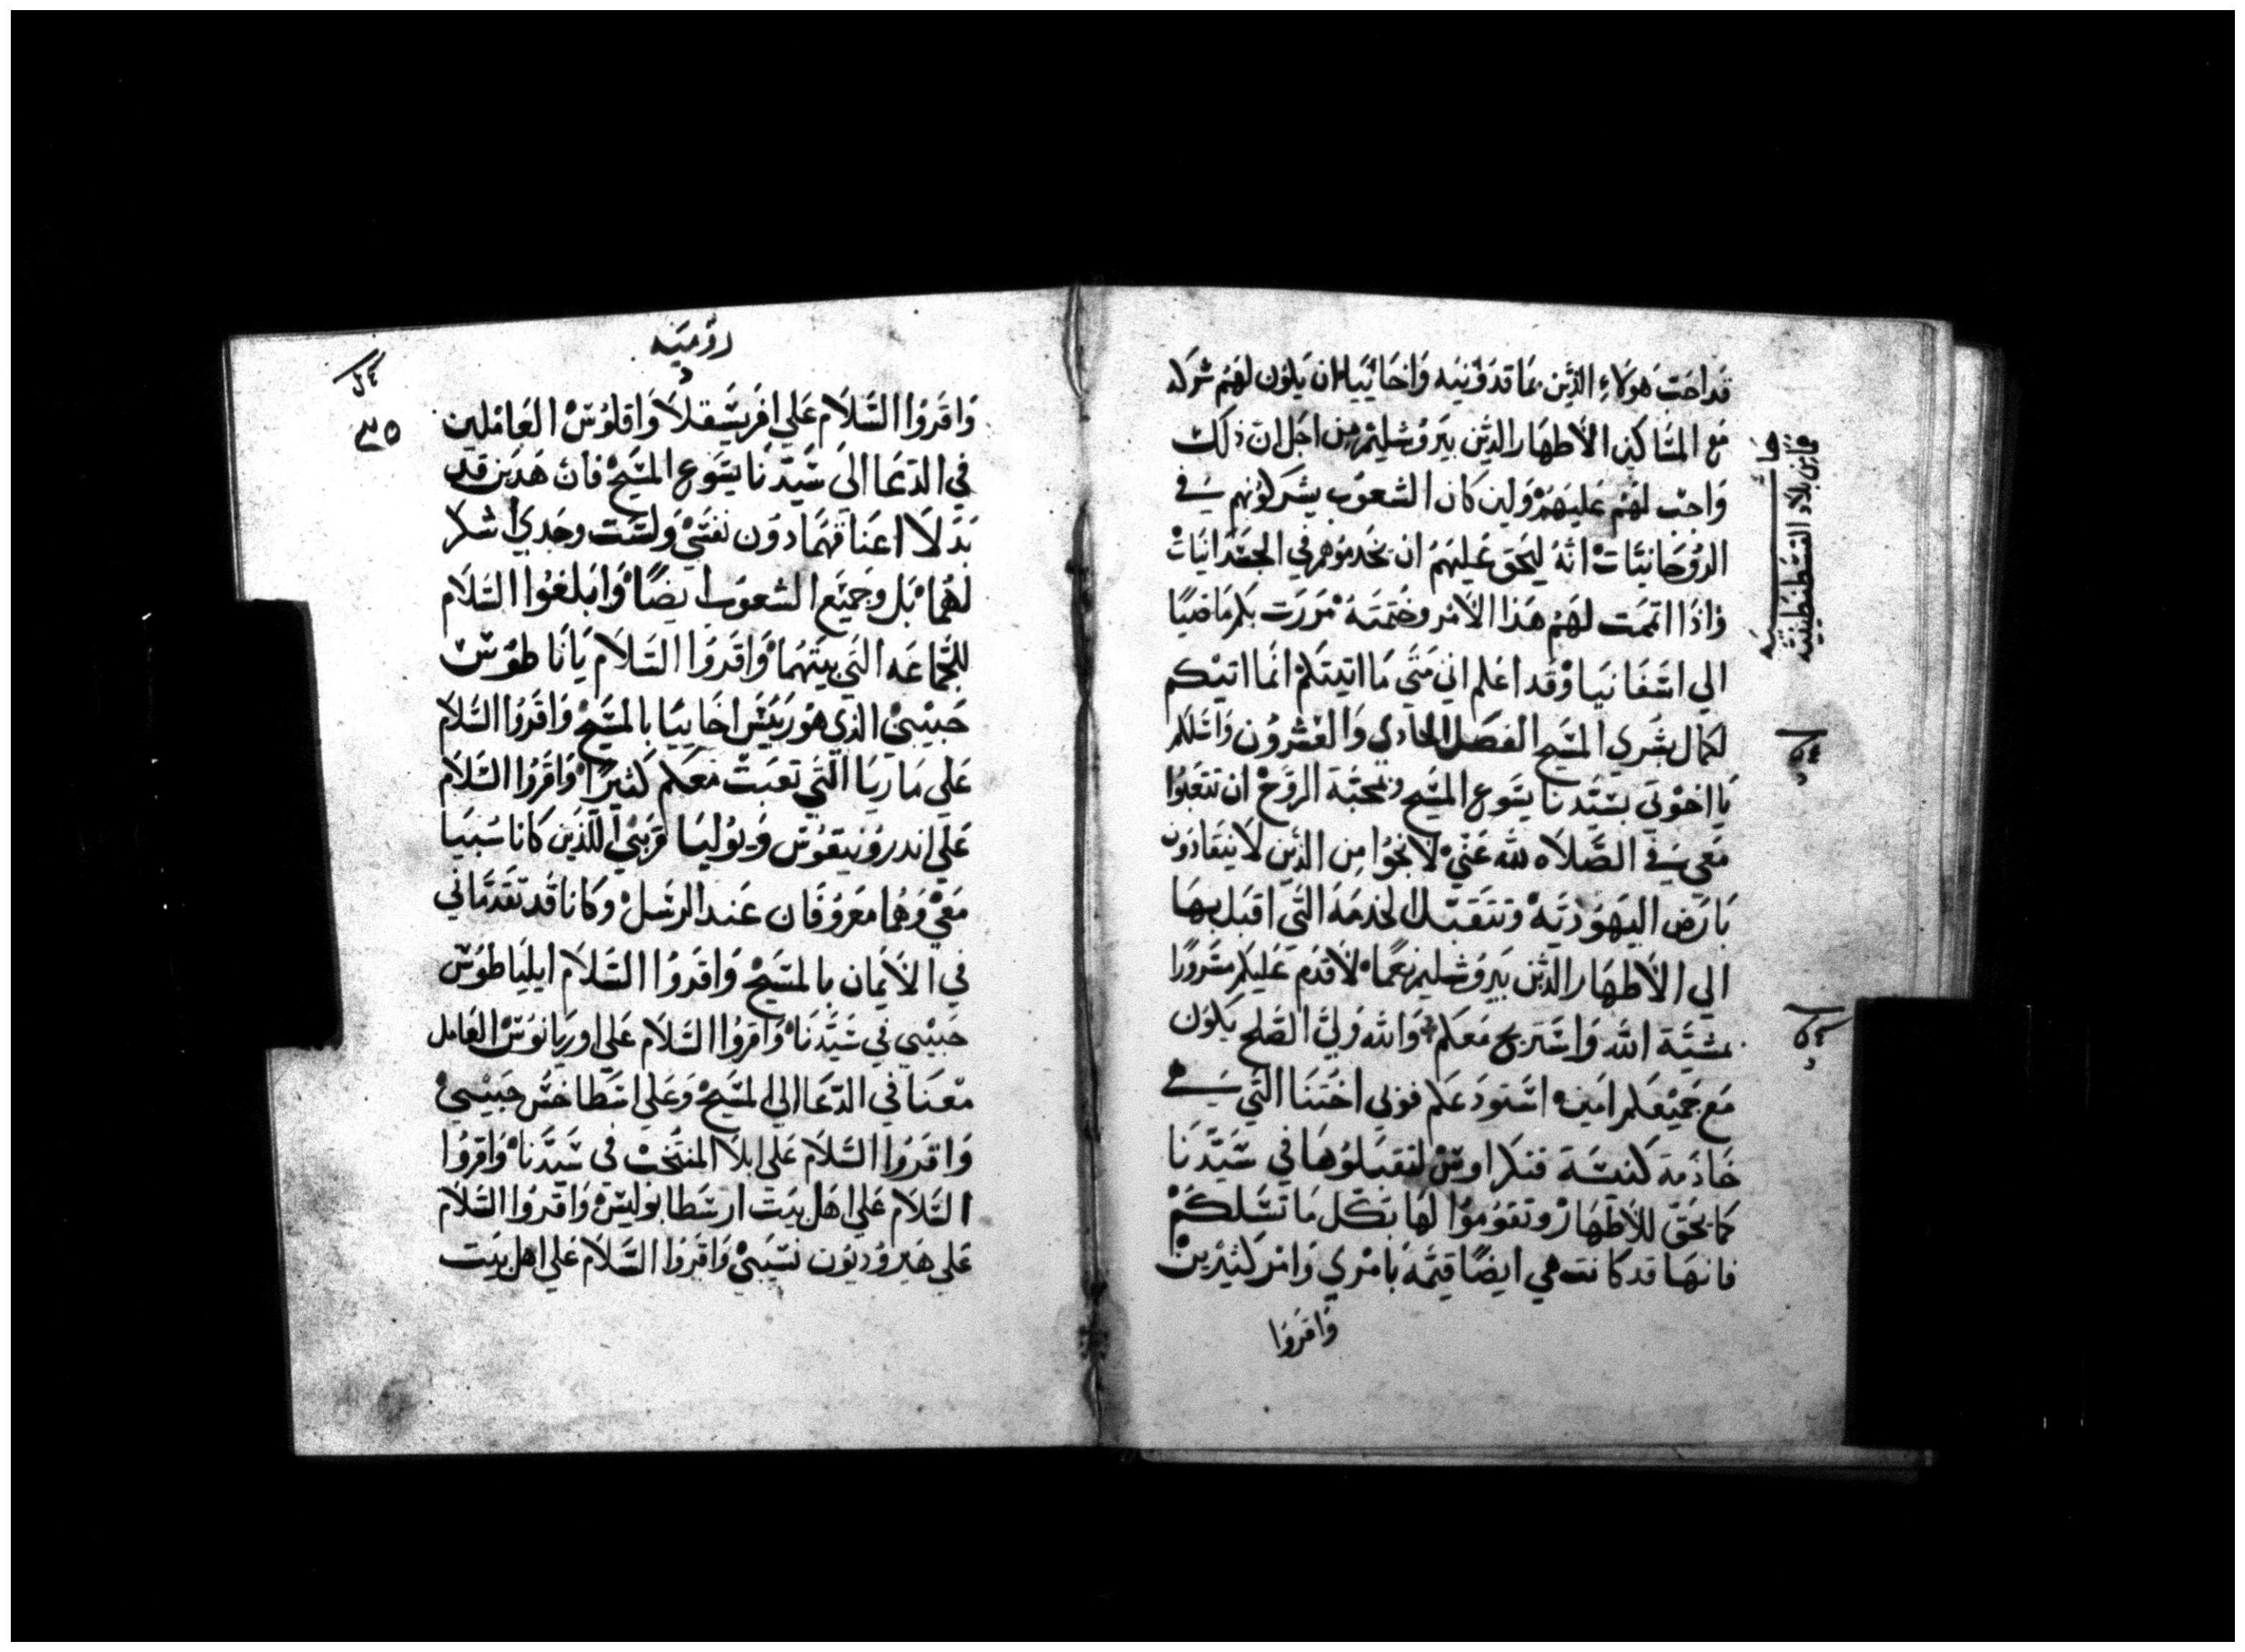 قداحَبَ هَولَاءِ الذَيْن بمَا قدوُنيَه وَاخَائيَا ان يَكون لهَم شركه
مَع المسَاكين الأطهَار الذيْن بيَروُشليمْ مِن اجَل ان ذلك
وَاجبْ لهَمْ عَليَهمْ وَلين كان الشعوُب يشرَكوُنهم في
الروُحَانيَات انهُ ليَحق عَليهَمْ ان يخدموُهم في الجَسَدَانيَات
فاذَا اتمَمت لهَمْ هَذا الامْر وخَتمتهُ مرَرت بكم مَاضيًا
الي اسْفَانيَا وَقد اعَلم اني مَتي مَا اتيتكمْ انمَا اتيكم
لكمَال بشري المسَيح الفصَل الحَادي وَالعَشرُون وَاسَلكم
يَا اخوَتي بسَيّدنا يسَوع المسَيح وَبمحَبَة الروُحْ ان تتعَبوُا
مَعي في الصَّلاه لله عَنيْ لانجوُا مِن الذيْن لا ينقادوُن
بَارَض اليهَوُديَهْ وَتتقبَل الخدمَة التَي اقبَل بهَا
الي الأطهَار الذيْن بيَروُشليم نعَمًا لاقدَم عَليكم مسَروُرًا
بمشيَّة الله وَاستَريح مَعَكم وَالله وَليّ الصَلح يَكون
مَع جَميْعَكم امَين اسَتودَعَكم فوبي اختنَا التَي هي
خَادَمة كنيسَة قنكرَاوسْ لتقبَلوُهَا في سَيّدنَا
كمَا يحَقّ للأطهَارْ وَتقوُموُا لهَا بكل مَا تسَلكمْ
فانهَا قد كانت هي ايضًا قيمَة بَامْري وَامْر كثيرَيْن
وَاقرَوا
قابن بلاد القسطنطينية
روُميَه
٣٥
وَاقرَوُا السَّلاَم عَلي افريسَقلاَ وَاقلوُسْ العَاملين
في الدعَا الي سَيّدنَا يسَوع المسَيحْ فان هَذين قد
بَذلاَ اعنَاقهَمَا دوُن نفسَيْ وَلسَت وحَدي اشكر
لهَمَا بَل وجَميْع الشعوُب ايضًا وَابلغوُا السَّلاَم
للجَماعَه التي بيَتهمَا وَاقرَوُا السَّلاَم يَا نَاطوُسْ
حَبيْبيْ الذي هوُ رَييَسْ اخَاييَا بالمسَيحْ وَاقرَوُا السَّلاَم
عَلي مَاريَا التَي تعَبتْ مَعَكم كثيرًا وَاقرَوُا السَّلاَم
عَلي اندروُنيَقوُسْ وَيوُليَا قرَبيْ اللذَين كانا سَبيَا
مَعيْ وَهُمَا مَعَروُفَان عَند الرسَلْ وَكانا قد تقدَمَاني
في الاَيمَان بالمسَيحْ وَاقرَوُا السَّلاَم ايلياطوُسْ
حَبيْبي في سَيّدنَا وَاقروُا السَّلاَم عَلي اوريانوُسْ العَامل
مْعَنَا في الدّعَا الي المسَيحْ وَعَلي اسَطاخسْ حَبيْبيْ
وَاقرَوُا السَّلاَم عَلي ابلاَ المنتخَبْ في سَيّدنَا وَاقرَوُا
السَّلاَم عَلي اهَل بيَت ارسَطابوُليسْ وَاقرَوُا السَّلاَم
عَلي هَيروُديوُن نسَيبَيْ وَاقرَوُا السَّلاَم عَلي اهل بيَت